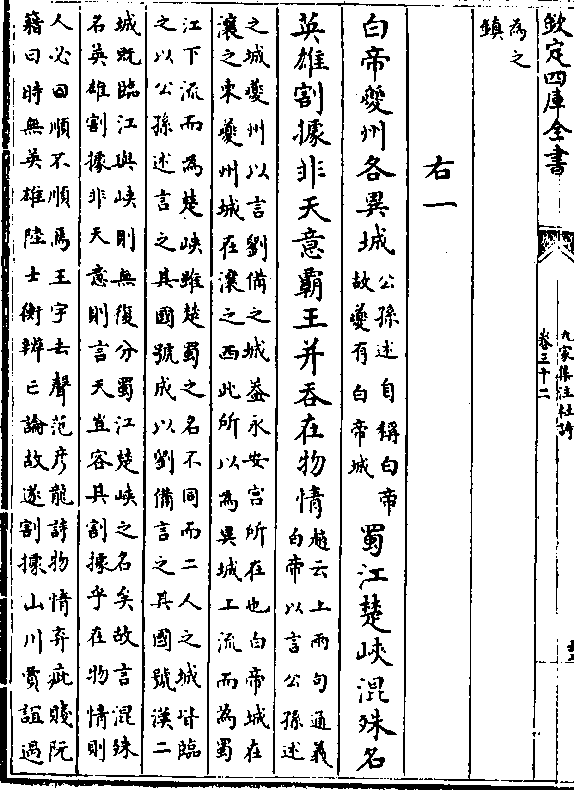 欽定四庫全書
九家集注杜詩
卷三十二
為之
鎮
右一
白帝夔州各異城
公孫述自稱白帝
故夔有白帝城
蜀江楚峽混殊名
英雄割據非天意霸王并吞在物情
趙云上兩句通義
白帝以言公孫述
之城夔州以言劉備之城蓋永安宮所在也白帝城在
瀼之東夔州城在瀼之西此所以為異城上流而為蜀
江下流而為楚峽雖楚蜀之名不同而二人之城皆臨
之以公孫述言之其國號成以劉備言之其國號漢二
城既臨江與峽則無復分蜀江楚峽之名矣故言混殊
名英雄割據非天意則言天豈容其割據乎在物情則
人必曰順不順焉王字去聲范彦龍詩物情弃疵賤阮
籍曰時無英雄陸士衡辨亡論故遂割據山川賈誼過